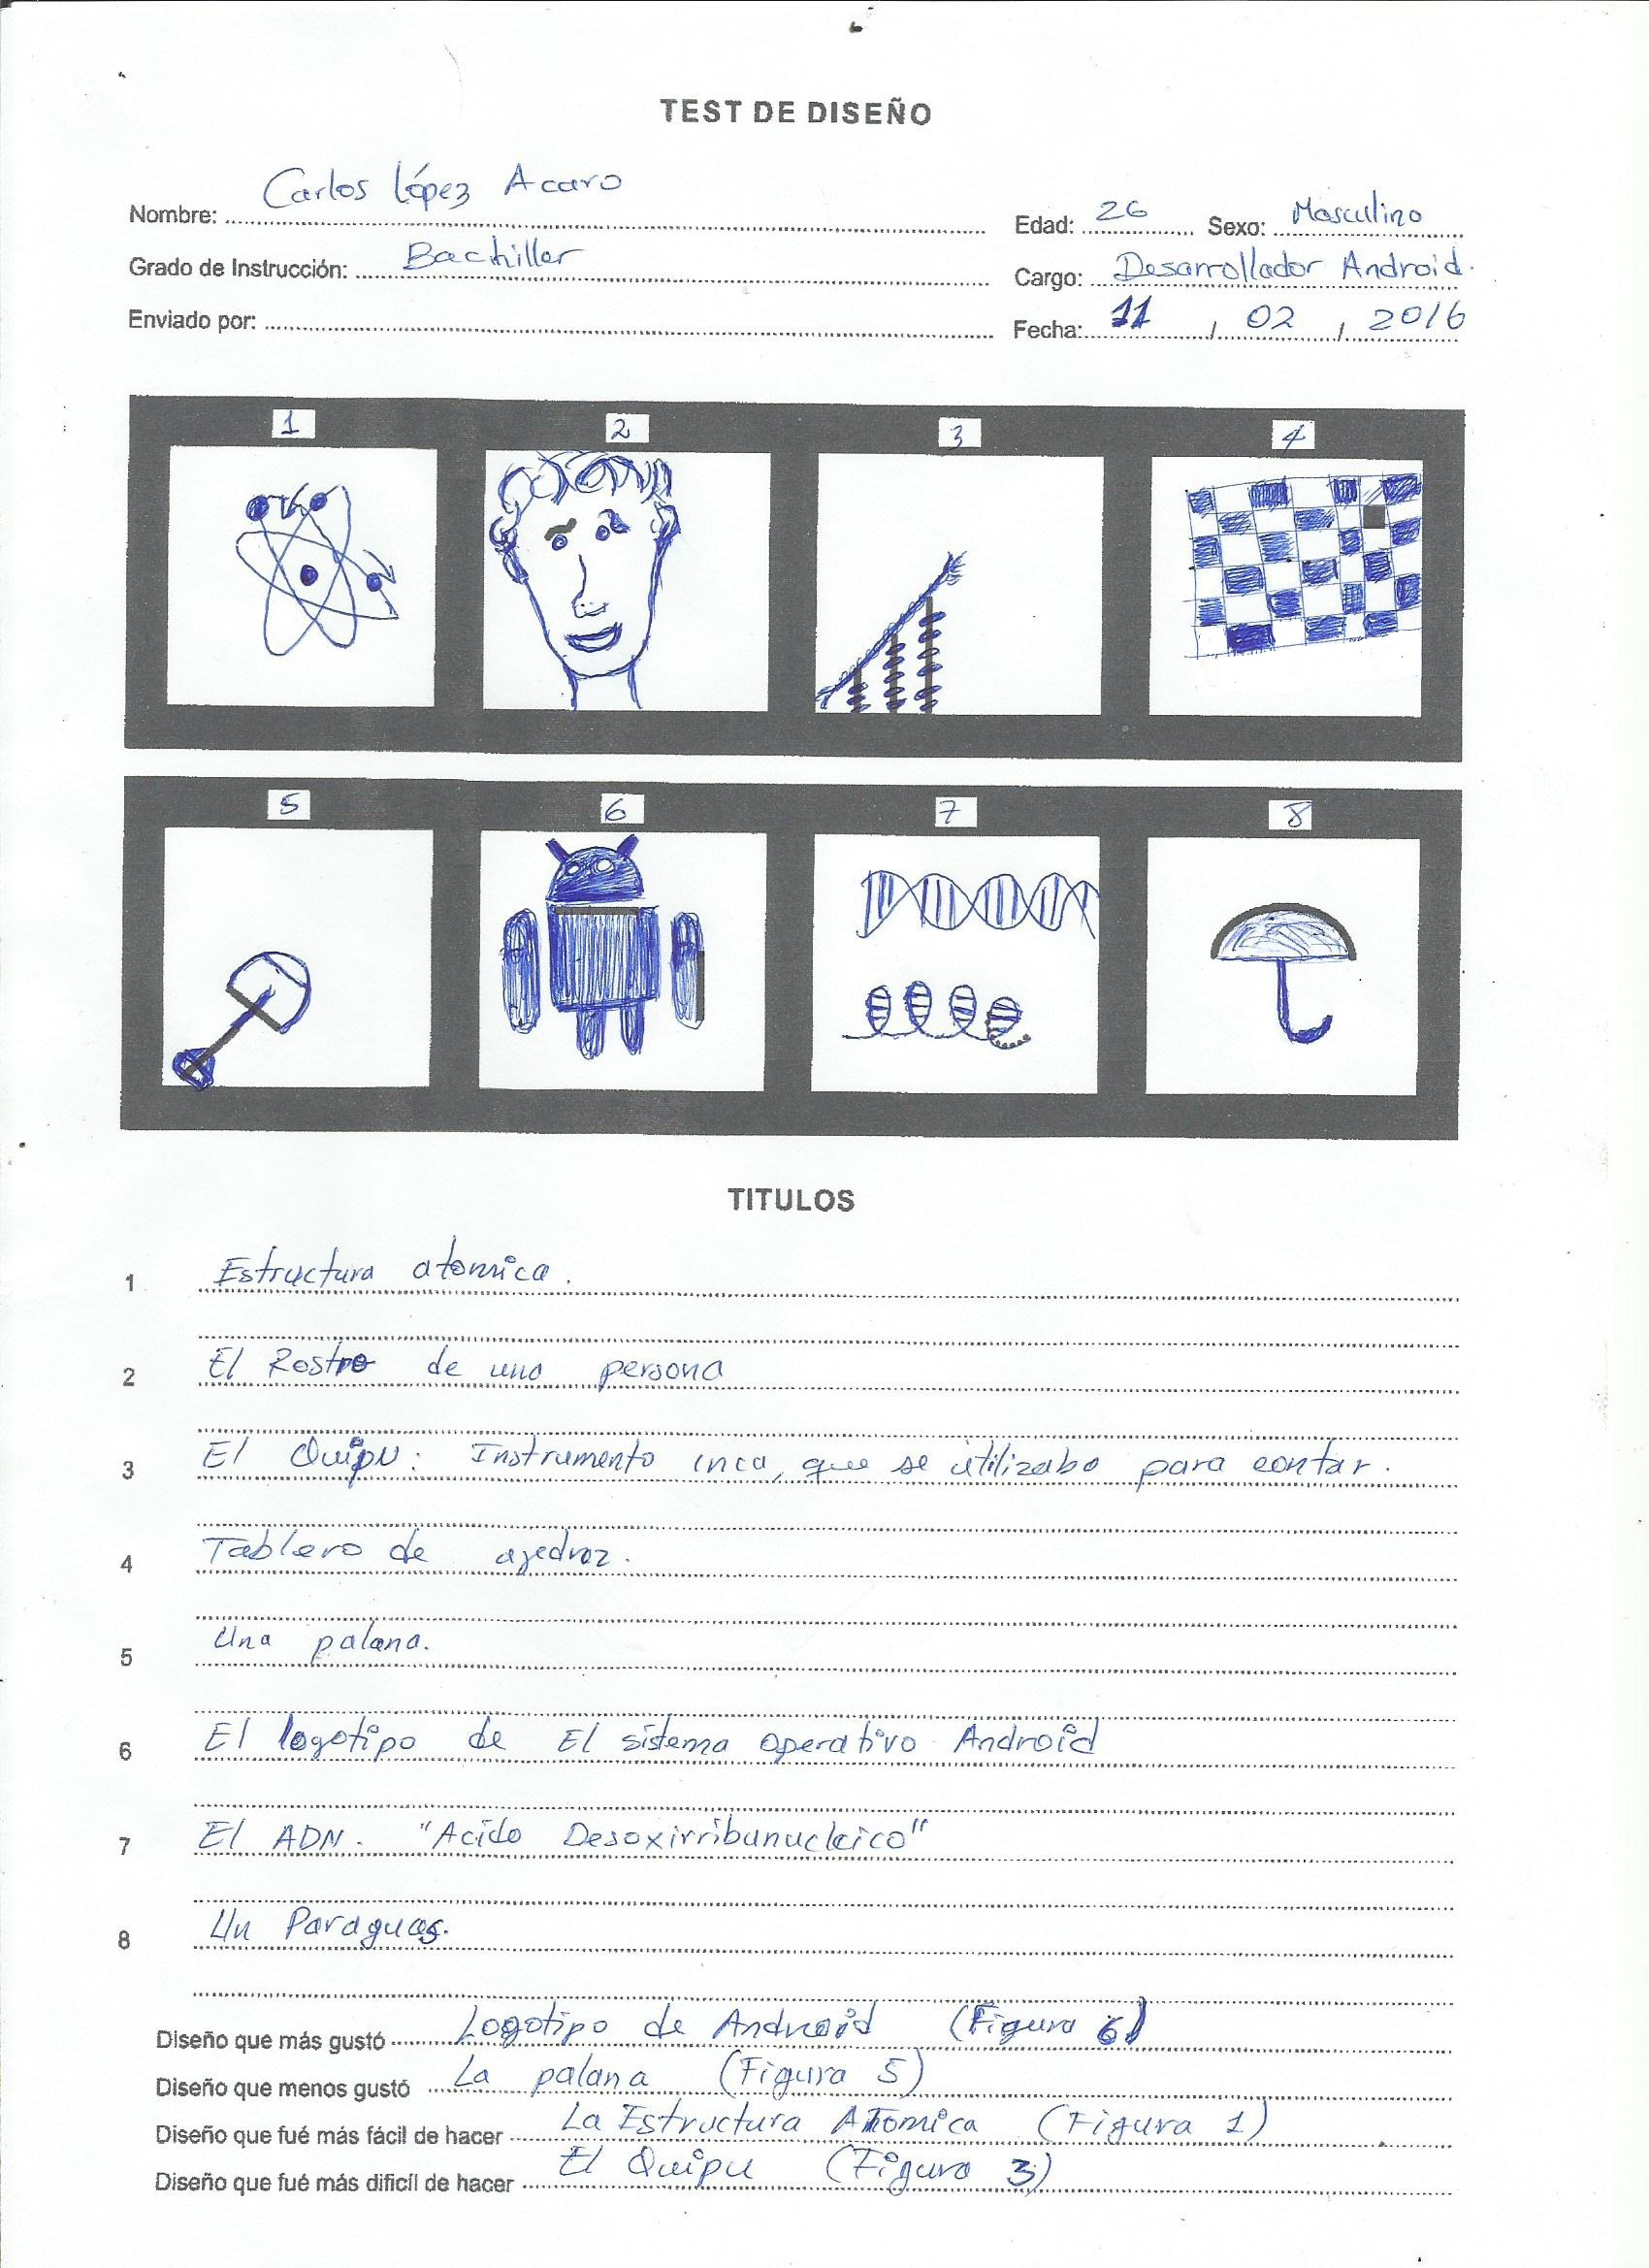 TEST DE DISEÑO
Nombre: Carlos López Acaro
Edad: 26 Sexo: Masculino
Grado de Instrucción: Bachiller
Cargo: Desarrollador Android.
Enviado por:
Fecha: 11 / 02 / 2016
1 2 3 4
5 6 7 8
TITULOS
1 Estructura atomica.
2 El Rostro de una persona
3 El Quipu: Instrumento inca, que se utilizaba para contar.
4 Tablero de ajedrez.
5 Una palana.
6 El logotipo de El sistema operativo Android
7 El ADN. "Acido Desoxirribunucleico"
8 Un Paraguas.
Diseño que más gustó Logotipo de Android (Figura 6)
Diseño que menos gustó La palana (Figura 5)
Diseño que fué más fácil de hacer La Estructura ATomica (Figura 1)
Diseño que fué más dificil de hacer El Quipu (Figura 3)